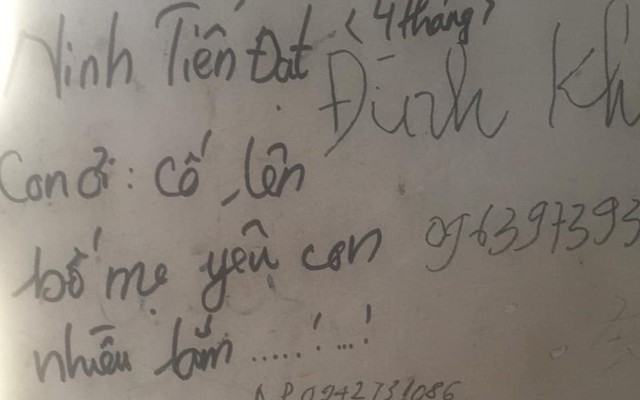 Ninh Tiến Đạt <4 tháng>
Đình Kh
Con ơi: cố lên
bố mẹ yêu con
096397393
nhiều lắm .....!...!
0942731086